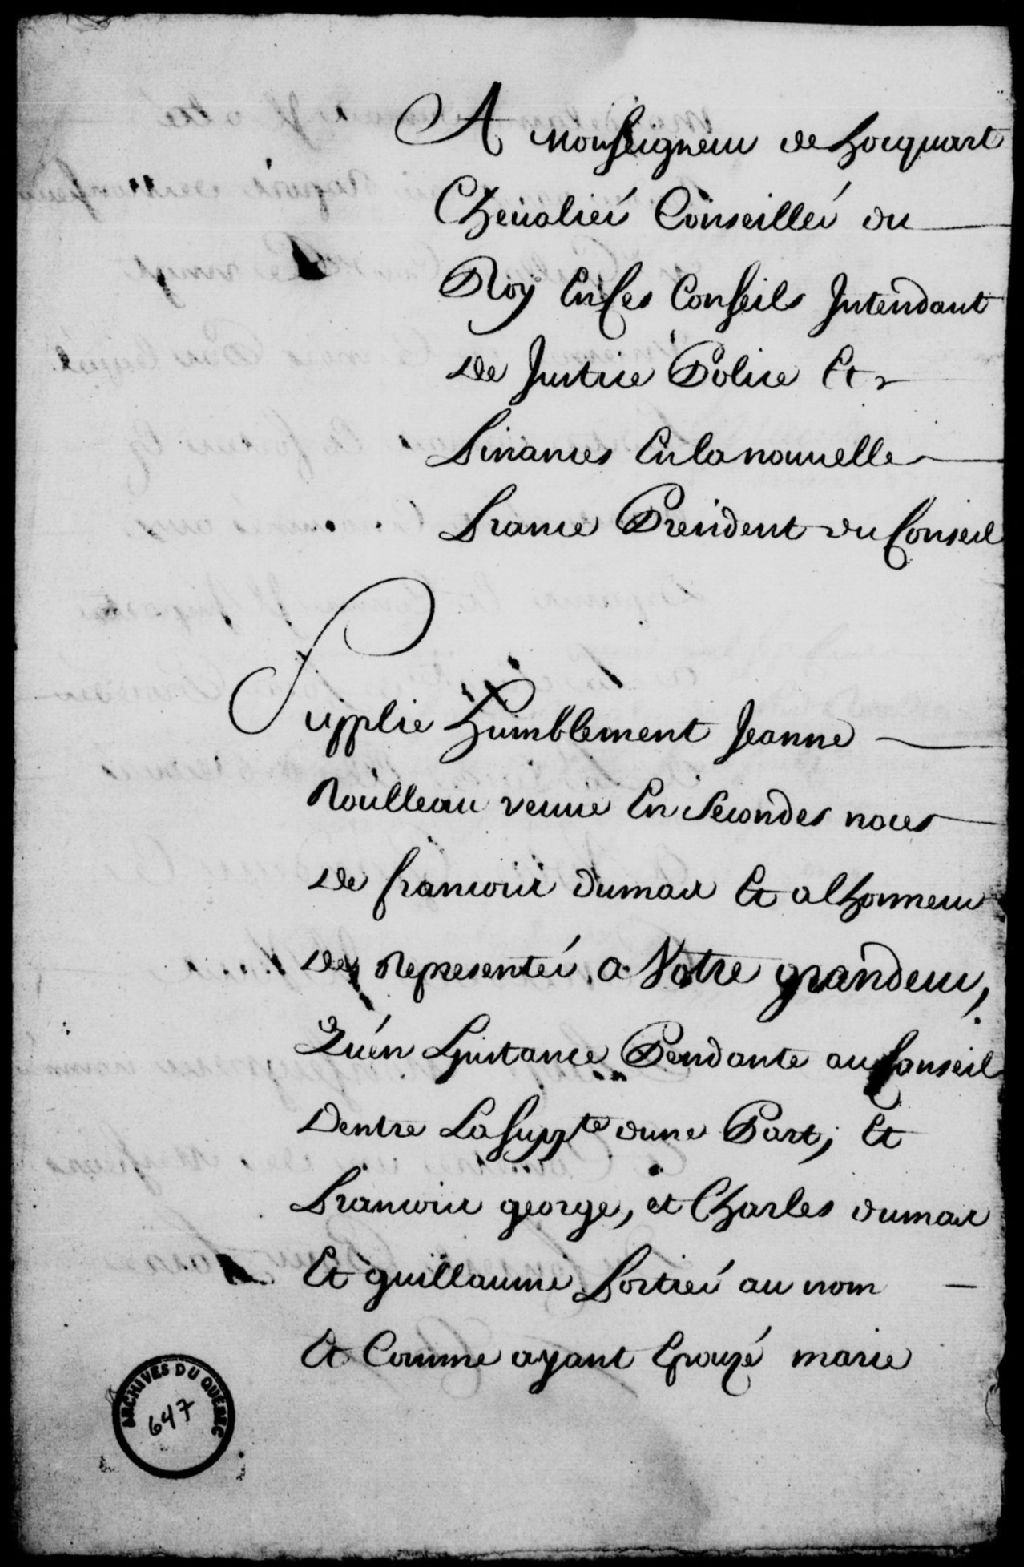 A Monseigneur de hocquart
Chevalier Conseiller du
Roy En ses Conseils Intendant
De Justice Police Et
finances En la nouvelle
france President du Conseil
Supplie humblement Jeanne
Roüilleau veuve En secondes noces
De francois dumas Et a lhonneur
De Representer a Votre grandeur,
Qu'en Linstance Pendante au Conseil
Dentre La supte dune Part, Et
francois george, et Charles dumas
Et guillaume fortier au nom
Et Comme ayant Epouzé marie
ARCHIVES DU QUEBEC
647